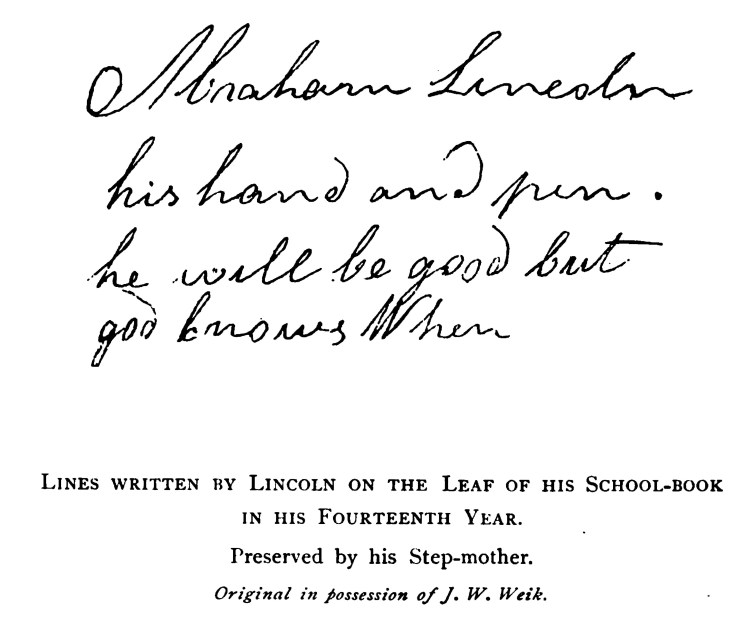 Abraham Lincoln
his hand and pen.
he will be good but
god knows When
LINES WRITTEN BY LINCOLN ON THE LEAF OF HIS SCHOOL-BOOK
IN HIS FOURTEENTH YEAR.
Preserved by his Step-mother.
Original in possession of J. W. Weik.